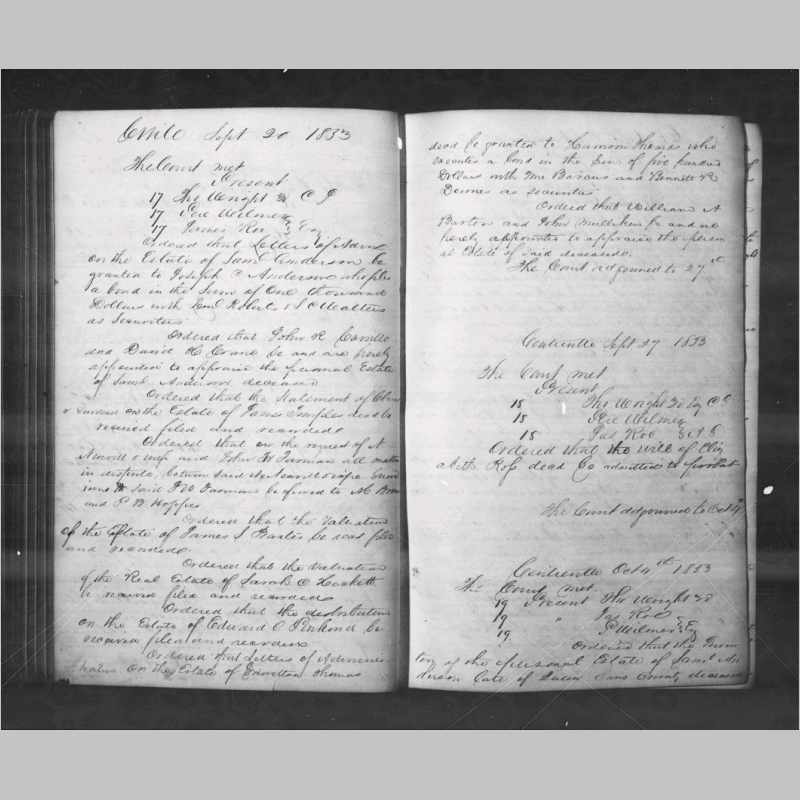 Cville Sept 20 1853
The Court met
Present
17 Thos Wright 3d C J
17 Per Wilmer
17 James Roe Esq
Ordered that Letters of Adms
on the Estate of Saml Anderson be
granted to Joseph C Anderson who files
a bond in the Sum of One thousand
Dollars with Roberts & S C Walters
as Securities
Ordered that John R
and David C be and are hereby
appointed to appraise the personal Estate
of Saml Anderson deceased
Ordered that the Statement of
on the Estate of James Temples dead be
received filed and recorded
Ordered that on the request of A
& wife and John W Jarman all matters
in dispute between said & wife
said J W Jarman be referred to
and B Hopper
Ordered that the Valuation
of the Estate of James S Baxter be recd filed
and recorded
Ordered that the valuation
of the Real Estate of Sarah C Hackett
be received filed and recorded
Ordered that the distribution
on the Estate of Edward C be
received filed and recorded
Ordered that Letters of Adminis
tration on the Estate of Thomas
dead be granted to Thomas who
executes a bond in the Sum of five hundred
Dollars with and Bennett R
Downes as securities
Ordered that William A
Barton and John Milliken Jr and are
hereby appointed to appraise the person
al Estate of said deceased.
The Court adjourned to 27th
Centreville Sept 27 1853
The Court met
Present
18 Thos Wright 3d Esq C J
18 Per Wilmer
18 Jas Roe
Ordered that the Will of Eliz
abeth Ross dead be admitted to probat
The Court adjourned to Oct 4th
Centreville Oct 4th 1853
The Court met
19 Present Thos Wright 3d
19 " Jas Roe
19 P Wilmer
Ordered that the Inven
tory of the personal Estate of Saml An
derson late of Queen Anns County deceased